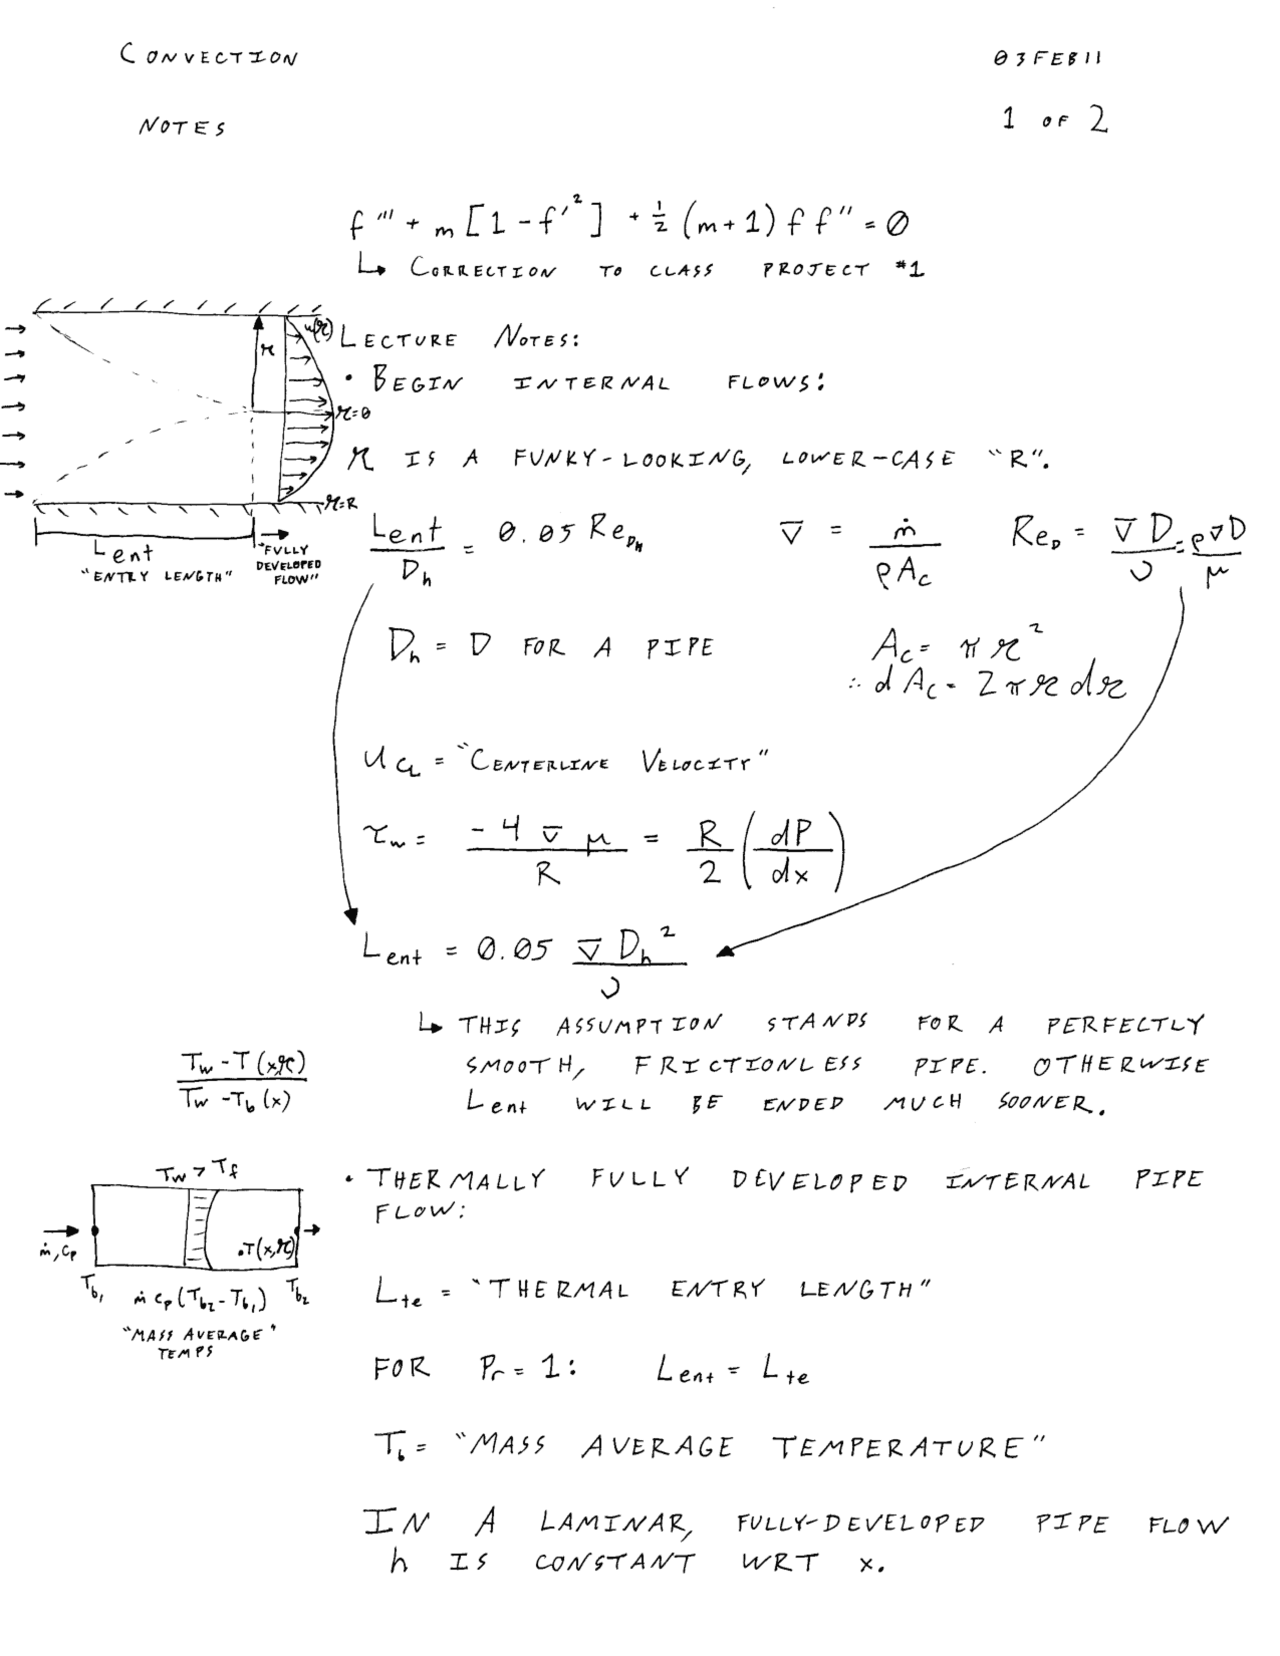 CONVECTION
03FEB11
NOTES
1 OF 2
f''' + m[1 - f'²] + ½(m+1) f f'' = 0
↳ CORRECTION TO CLASS PROJECT #1
u(r)
r
r=0
r=R
Lent
"ENTRY LENGTH"
"FULLY
DEVELOPED
FLOW"
LECTURE NOTES:
• BEGIN INTERNAL FLOWS:
r IS A FUNKY-LOOKING, LOWER-CASE "R".
Lent/Dh = 0.05 Re_Dh    V̄ = ṁ/(ρAc)    Re_D = V̄D/ν = ρV̄D/μ
Dh = D FOR A PIPE
Ac = πr²
∴ dAc = 2πr dr
u_CL = "CENTERLINE VELOCITY"
τw = -4V̄μ/R = R/2 (dP/dx)
Lent = 0.05 V̄Dh²/ν
↳ THIS ASSUMPTION STANDS FOR A PERFECTLY
SMOOTH, FRICTIONLESS PIPE. OTHERWISE
Lent WILL BE ENDED MUCH SOONER.
(Tw - T(x,r))/(Tw - Tb(x))
Tw > Tf
ṁ, cp
•T(x,r)
Tb1
ṁ cp(Tb2 - Tb1)
Tb2
"MASS AVERAGE"
TEMPS
• THERMALLY FULLY DEVELOPED INTERNAL PIPE
FLOW:
Lte = "THERMAL ENTRY LENGTH"
FOR Pr = 1: Lent = Lte
Tb = "MASS AVERAGE TEMPERATURE"
IN A LAMINAR, FULLY-DEVELOPED PIPE FLOW
h IS CONSTANT WRT x.